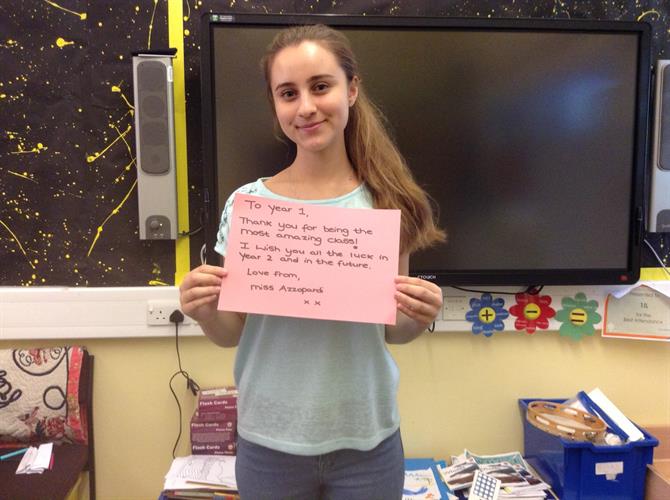 To year 1,
Thank you for being the
most amazing class!
I wish you all the luck in
year 2 and in the future.
Love from,
Miss Azzopardi
x x
CTOUCH
1B
for the
Best Attendance
Flash Cards
Flash Cards
Flash Cards